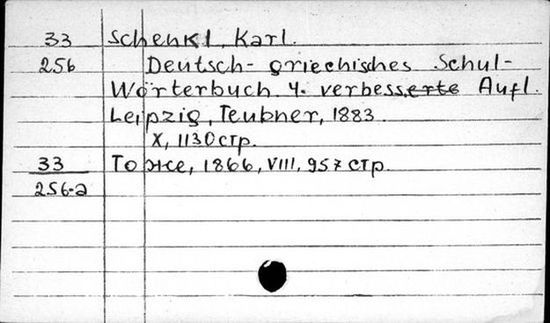 33 Schenkl, Karl.
256 Deutsch-griechisches Schul-
Wörterbuch. 4. verbesserte Aufl.
Leipzig, Teubner, 1883.
X, 1130 стр.
33 То же, 1866, VIII, 957 стр.
256-а